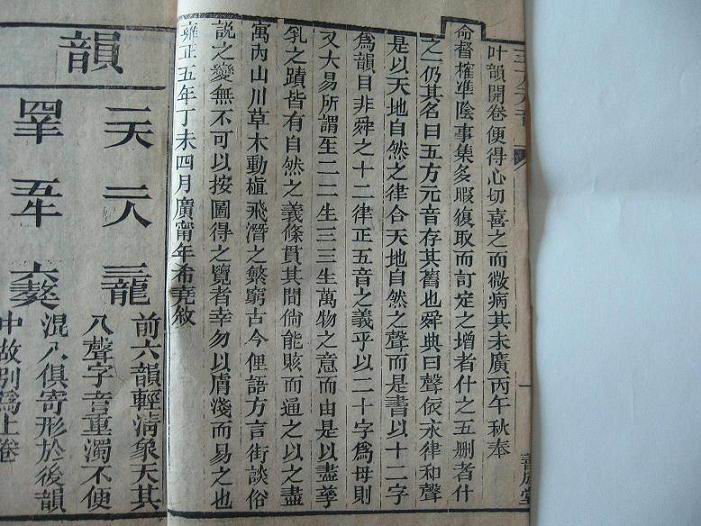 叶韻開卷便得心切喜之而微病其未廣丙午秋奉
命督榷凖陰事集多暇復取而訂定之增者什之五删者什
之一仍其名曰五方元音存其舊也舜典曰聲依永律和聲
是以天地自然之律合天地自然之聲而是書以十二字
爲韻目非舜之十二律正五音之義乎以二十字爲母則
又大易所謂生二二生三三生萬物之意而由是以盡孳
乳之蹟皆有自然之義條貫其間倘能賅而通之以之盡
寓內山川草木動植飛潛之繁窮古今俚語方言街談俗
説之變無不可以按圖得之覽者幸勿以膚淺而易之也
雍正五年丁未四月廣甯年希堯敘
善成堂
韻
一天 二人 三龍
四羊 五牛 六獒
前六韻輕清象天其
入聲字音重濁不便
混入俱寄形於後韻
中故别爲上卷